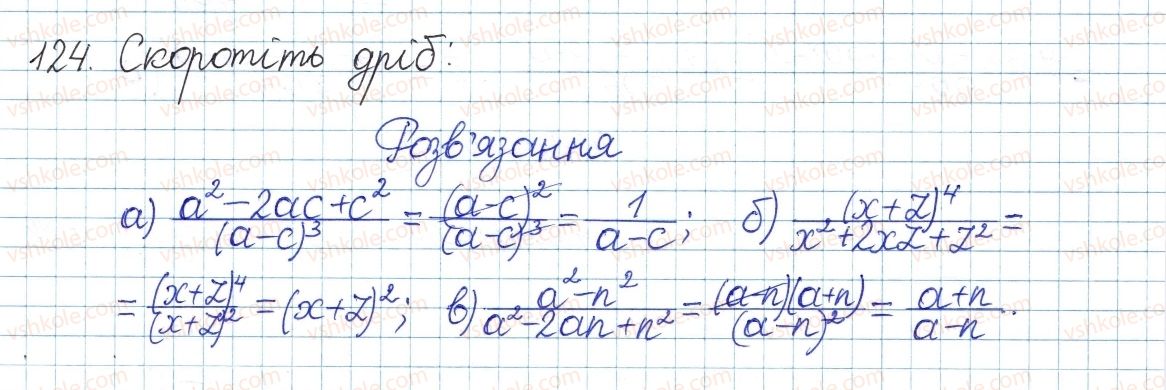 124. Скоротіть дріб:
Розв'язання
а) (a²-2ac+c²)/(a-c)³ = (a-c)²/(a-c)³ = 1/(a-c); б) (x+z)⁴/(x²+2xz+z²) =
= (x+z)⁴/(x+z)² = (x+z)²; в) (a²-n²)/(a²-2an+n²) = (a-n)(a+n)/(a-n)² = (a+n)/(a-n).